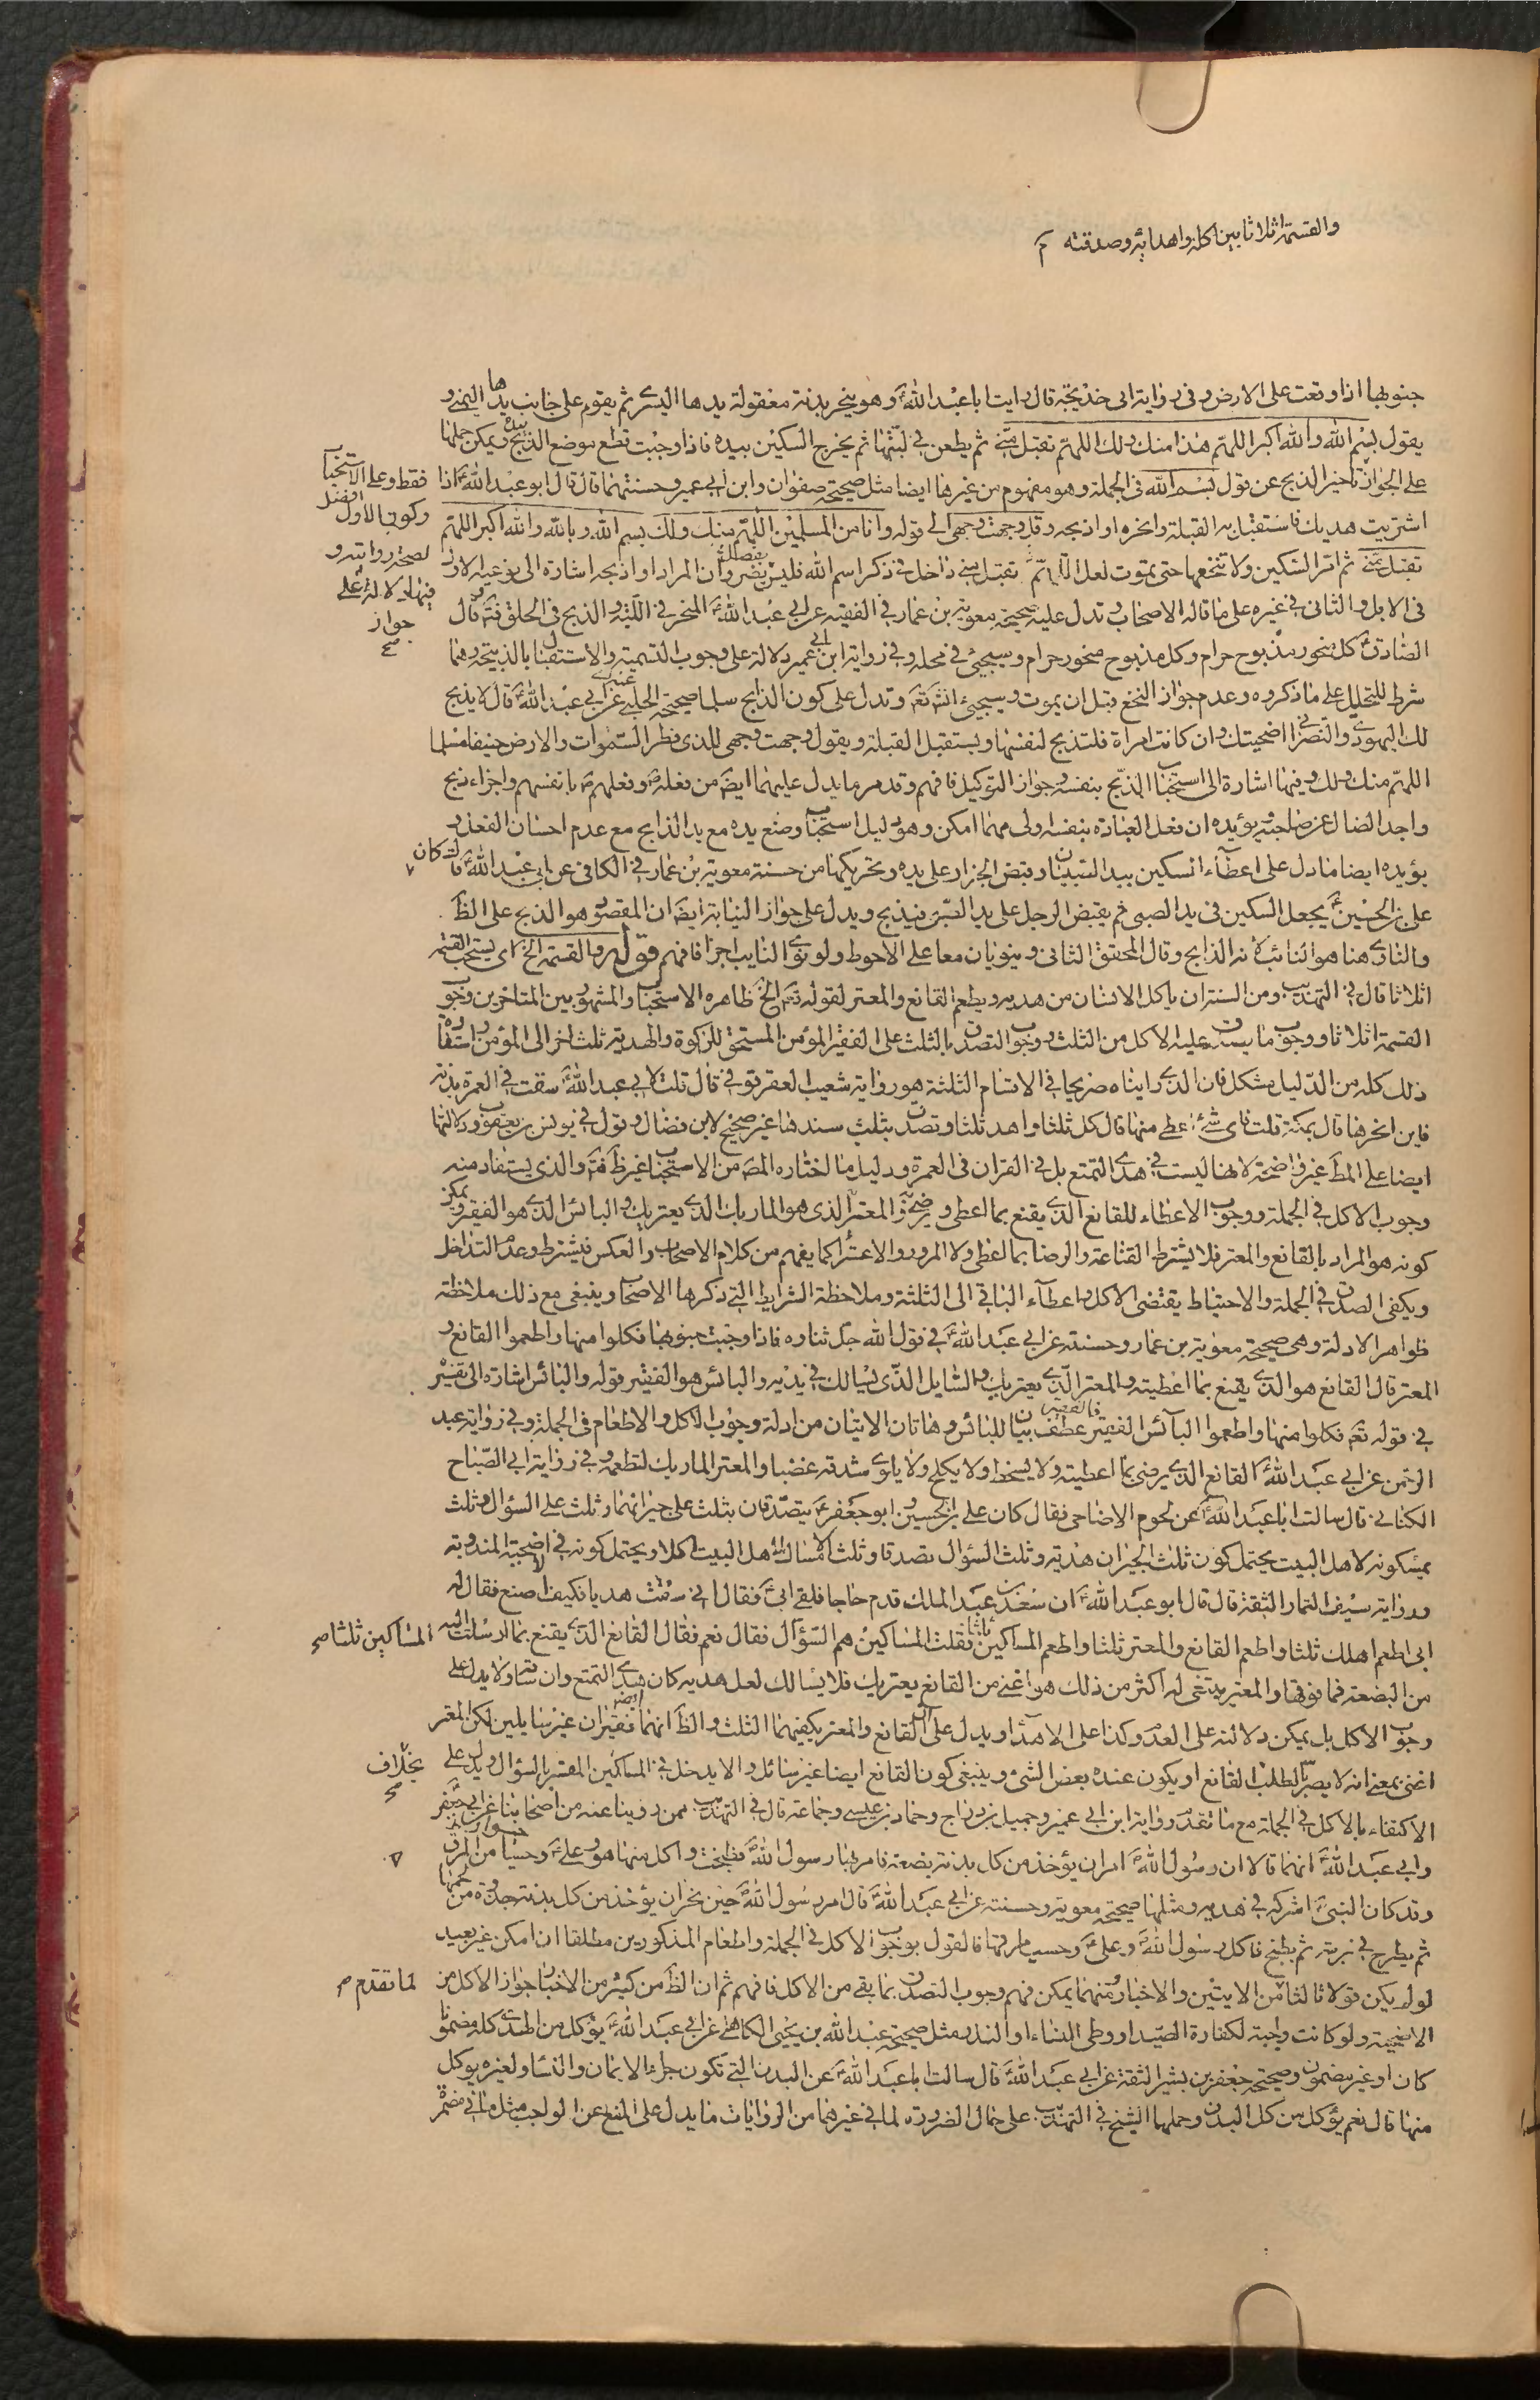 والقسمة اثلاثا بين اكله واهدايه وصدقته
جنوبها اذا وقعت على الارض وفى رواية ابى خديجة قال رايت ابا عبد الله ع وهو ينحر بدنة معقولة يدها اليسرى ثم يقوم على جانب يدها اليمنى و
يقول بسم الله والله اكبر اللهم هذا منك ولك اللهم تقبل منى ثم يطعن فى لبتها ثم يخرج السكين بيده فاذا وجبت قطع موضع الذبح بيده ويمكن حملها
على الجواز تاخير الذبح عن قول بسم الله فى الجملة وهو مفهوم من غيرها ايضا مثل صحيحة صفوان وابن ابى عمير وحسنتهما قال قال ابو عبد الله ع اذا
فقط وعلى الاستحباب
وكون الاول افضل
لصحة روايته و
فيها دلالة على
جواز
اشتريت هديك فاستقبل به القبلة وانحره او اذبحه وقل وجهت وجهى الى قوله وانا من المسلمين اللهم منك ولك بسم الله وبالله والله اكبر اللهم
تقبل منى ثم امر السكين ولا تنخعها حتى يموت لعل اللهم تقبل منى داخل فى ذكر اسم الله فليس بفصل مضر وان المراد او اذبحه اشارة الى نوعيه الاول
فى الابل والثانى فى غيره على ما قاله الاصحاب وتدل عليه صحيحة معوية بن عمار فى الفقيه عن ابى عبد الله ع المنحر فى اللبة والذبح فى الحلق فيه وقال
الصادق ع كل منحور مذبوح حرام وكل مذبوح منحور حرام وسيجيئ فى محله وفى رواية ابن ابى عمير دلالة على وجوب التسمية والاستقبال بالذبيحة وهما
شرط للتحليل على ما ذكروه وعدم جواز النخع قبل ان يموت وسيجيئ انشاء تعه وتدل على كون الذابح مسلما صحيحة الحلبى عن ابى عبد الله ع قال لا يذبح
لك اليهودى والنصرانى اضحيتك وان كانت امراة فلتذبح لنفسها ويستقبل القبلة ويقول وجهت وجهى للذى فطر السموات والارض حنيفا مسلما
اللهم منك ولك وفيها اشارة الى استحباب الذبح بنفسه وجواز التوكيل فافهم وقد مر ما يدل عليهما ايضا من فعله ص وفعلهم ع بانفسهم واجزاء ذبح
واجد الضال عن صاحبه ويؤيده ان فعل العبادة بنفسه اولى مهما امكن وهو دليل استحباب وضع يده مع يد الذابح مع عدم احسان الفعل و
يؤيده ايضا ما دل على اعطاء السكين بيد الصبيان وقبض الجزار على يده وتحريكها من حسنة معوية بن عمار فى الكافى عن ابى عبد الله ع قال كان
على بن الحسين ع يجعل السكين فى يد الصبى ثم يقبض الرجل على يد الصبى فيذبح ويدل على جواز النيابة ايضا ان المقصود هو الذبح على الظ
والناوى هنا هو النائب لانه الذابح وقال المحقق الثانى وينويان معا على الاحوط ولو نوى النايب اجزا فافهم قوله والقسمة الخ اى يستحب القسمة
اثلاثا قال فى التهذيب ومن السنة ان ياكل الانسان من هديه ويطعم القانع والمعتر لقوله تعه الخ ظاهره الاستحباب والمشهور بين المتاخرين وجوب
القسمة اثلاثا ووجوب ما يسد عليه الاكل من الثلث ووجوب التصدق بالثلث على الفقير المؤمن المستحق للزكوة والهدية ثلث اخر الى المؤمن واستفادة
ذلك كله من الدليل مشكل فان الذى رايناه صريحا فى الاقسام الثلثة هو رواية شعيب العقرقوفى قال قلت لابى عبد الله ع سقت فى العمرة بدنة
فاين انحرها قال بمكة قلت فاى شئ اعطى منها قال كل ثلثا واهد ثلثا وتصدق بثلث سندها غير صحيح لابن فضال وقول فى يونس بن يعقوب ودلالتها
ايضا على المط غير واضحة لانها ليست فى هدى التمتع بل فى القران فى العمرة ودليل ما اختاره المص من الاستحباب غير ظ فتم والذى يستفاد منه
وجوب الاكل فى الجملة ووجوب الاعطاء للقانع الذى يقنع بما اعطى ويرضى به والمعتر الذى هو المار بك الذى يعتريك والبائس الذى هو الفقير ويمكن
كونه هو المراد بالقانع والمعتر فلا يشترط القناعة والرضا بما اعطى ولا المرور والاعتراء كما يفهم من كلام الاصحاب والعكس فيشترط وعدم التداخل
ويكفى الصدق فى الجملة والاحتياط يقتضى الاكل واعطاء الباقى الى الثلثة وملاحظة الشرايط التى ذكرها الاصحاب وينبغى مع ذلك ملاحظة
ظواهر الادلة وهى صحيحة معوية بن عمار وحسنته عن ابى عبد الله ع فى قول الله جل ثناوه فاذا وجبت جنوبها فكلوا منها واطعموا القانع و
المعتر قال القانع هو الذى يقنع بما اعطيته والمعتر الذى يعتريك والسايل الذى يسالك فى يديه والبائس هو الفقير قوله والبائس اشارة الى تفسير
فى قوله تعه فكلوا منها واطعموا البائس الفقير فالفقير عطف بيان للبائس وهاتان الايتان من ادلة وجوب الاكل والاطعام فى الجملة وفى رواية عبد
الرحمن عن ابى عبد الله ع القانع الذى يرضى بما اعطيته ولا يسخط ولا يكلح ولا يلوى شدقه غضبا والمعتر المار بك لتطعمه وفى رواية ابى الصباح
الكنانى قال سالت ابا عبد الله ع عن لحوم الاضاحى فقال كان على بن الحسين وابو جعفر ع يتصدقان بثلث على جيرانهما وثلث على السؤال وثلث
يمسكونه لاهل البيت يحتمل كون ثلث الجيران هدية وثلث السؤال تصدقا وثلث الامساك لاهل البيت اكلا ويحتمل كونه فى الاضحية المندوبة
ورواية سيف التمار الثقة قال قال ابو عبد الله ع ان سعد بن عبد الملك قدم حاجا فلقى ابى فقال انى سقت هديا فكيف اصنع فقال له
ابى اطعم اهلك ثلثا واطعم القانع والمعتر ثلثا واطعم المساكين ثلثا فقلت المساكين هم السؤال فقال نعم فقال القانع الذى يقنع بما ارسلت اليه
المساكين ثلثا صح
من البضعة فما فوقها والمعتر ينبغى له اكثر من ذلك هو اغنى من القانع يعتريك فلا يسالك لعل هديه كان هدى التمتع وان ولا يدل على
وجوب الاكل بل يمكن دلالته على العدم وكذا على الاهداء ويدل على ان القانع والمعتر يكفيهما الثلث والظ انهما فقيران غير سايلين لكن المعتر
اغنى بمعنى انه لا يصر بالطلب القانع او يكون عنده بعض الشئ وينبغى كون القانع ايضا غير سائل والا يدخل فى المساكين المفسر بالسؤال ويدل على
بخلاف
الاكتفاء بالاكل فى الجملة مع ما تقدم رواية ابن ابى عمير وجميل بن دراج وحماد بن عيسى وجماعة قال فى التهذيب ممن روينا عنه من اصحابنا عن ابى جعفر
وابى عبد الله ع انهما قالا ان رسول الله ص امر ان يؤخذ من كل بدنة بضعة فامر بها رسول الله ص فطبخت واكل منها هو وعلى ع وحسيا من المرق
وقد كان النبى ص اشركه فى هديه ومثلها صحيحة معوية وحسنته عن ابى عبد الله ع قال امر رسول الله ص حين نحر ان يؤخذ من كل بدنة جذوة من لحمها
ثم يطرح فى برمة ثم يطبخ فاكل رسول الله ص وعلى ع وحسيا مرقها فالقول بوجوب الاكل فى الجملة واطعام المذكورين مطلقا ان امكن غير بعيد
لو لم يكن قولا ثالثا من الايتين والاخبار منهما يمكن فهم وجوب التصدق بما بقى من الاكل فافهم ثم ان الظ من كثير من الاخبار جواز الاكل من
لما تقدم
الاضحية ولو كانت واجبة لكفارة الصيد او وطى النساء او النذر مثل صحيحة عبد الله بن يحيى الكاهلى عن ابى عبد الله ع يؤكل من الهدى كله مضمونا
كان او غير مضمون وصحيحة جعفر بن بشير الثقة عن ابى عبد الله ع قال سالت ابا عبد الله ع عن البدن التى تكون جزاء الايمان والنساء ولغيره يوكل
منها قال نعم يؤكل من كل البدن وحملها الشيخ فى التهذيب على حال الضرورة لما فى غيرهما من الروايات ما يدل على المنع عن الواجب مثل ما فى مضمرة